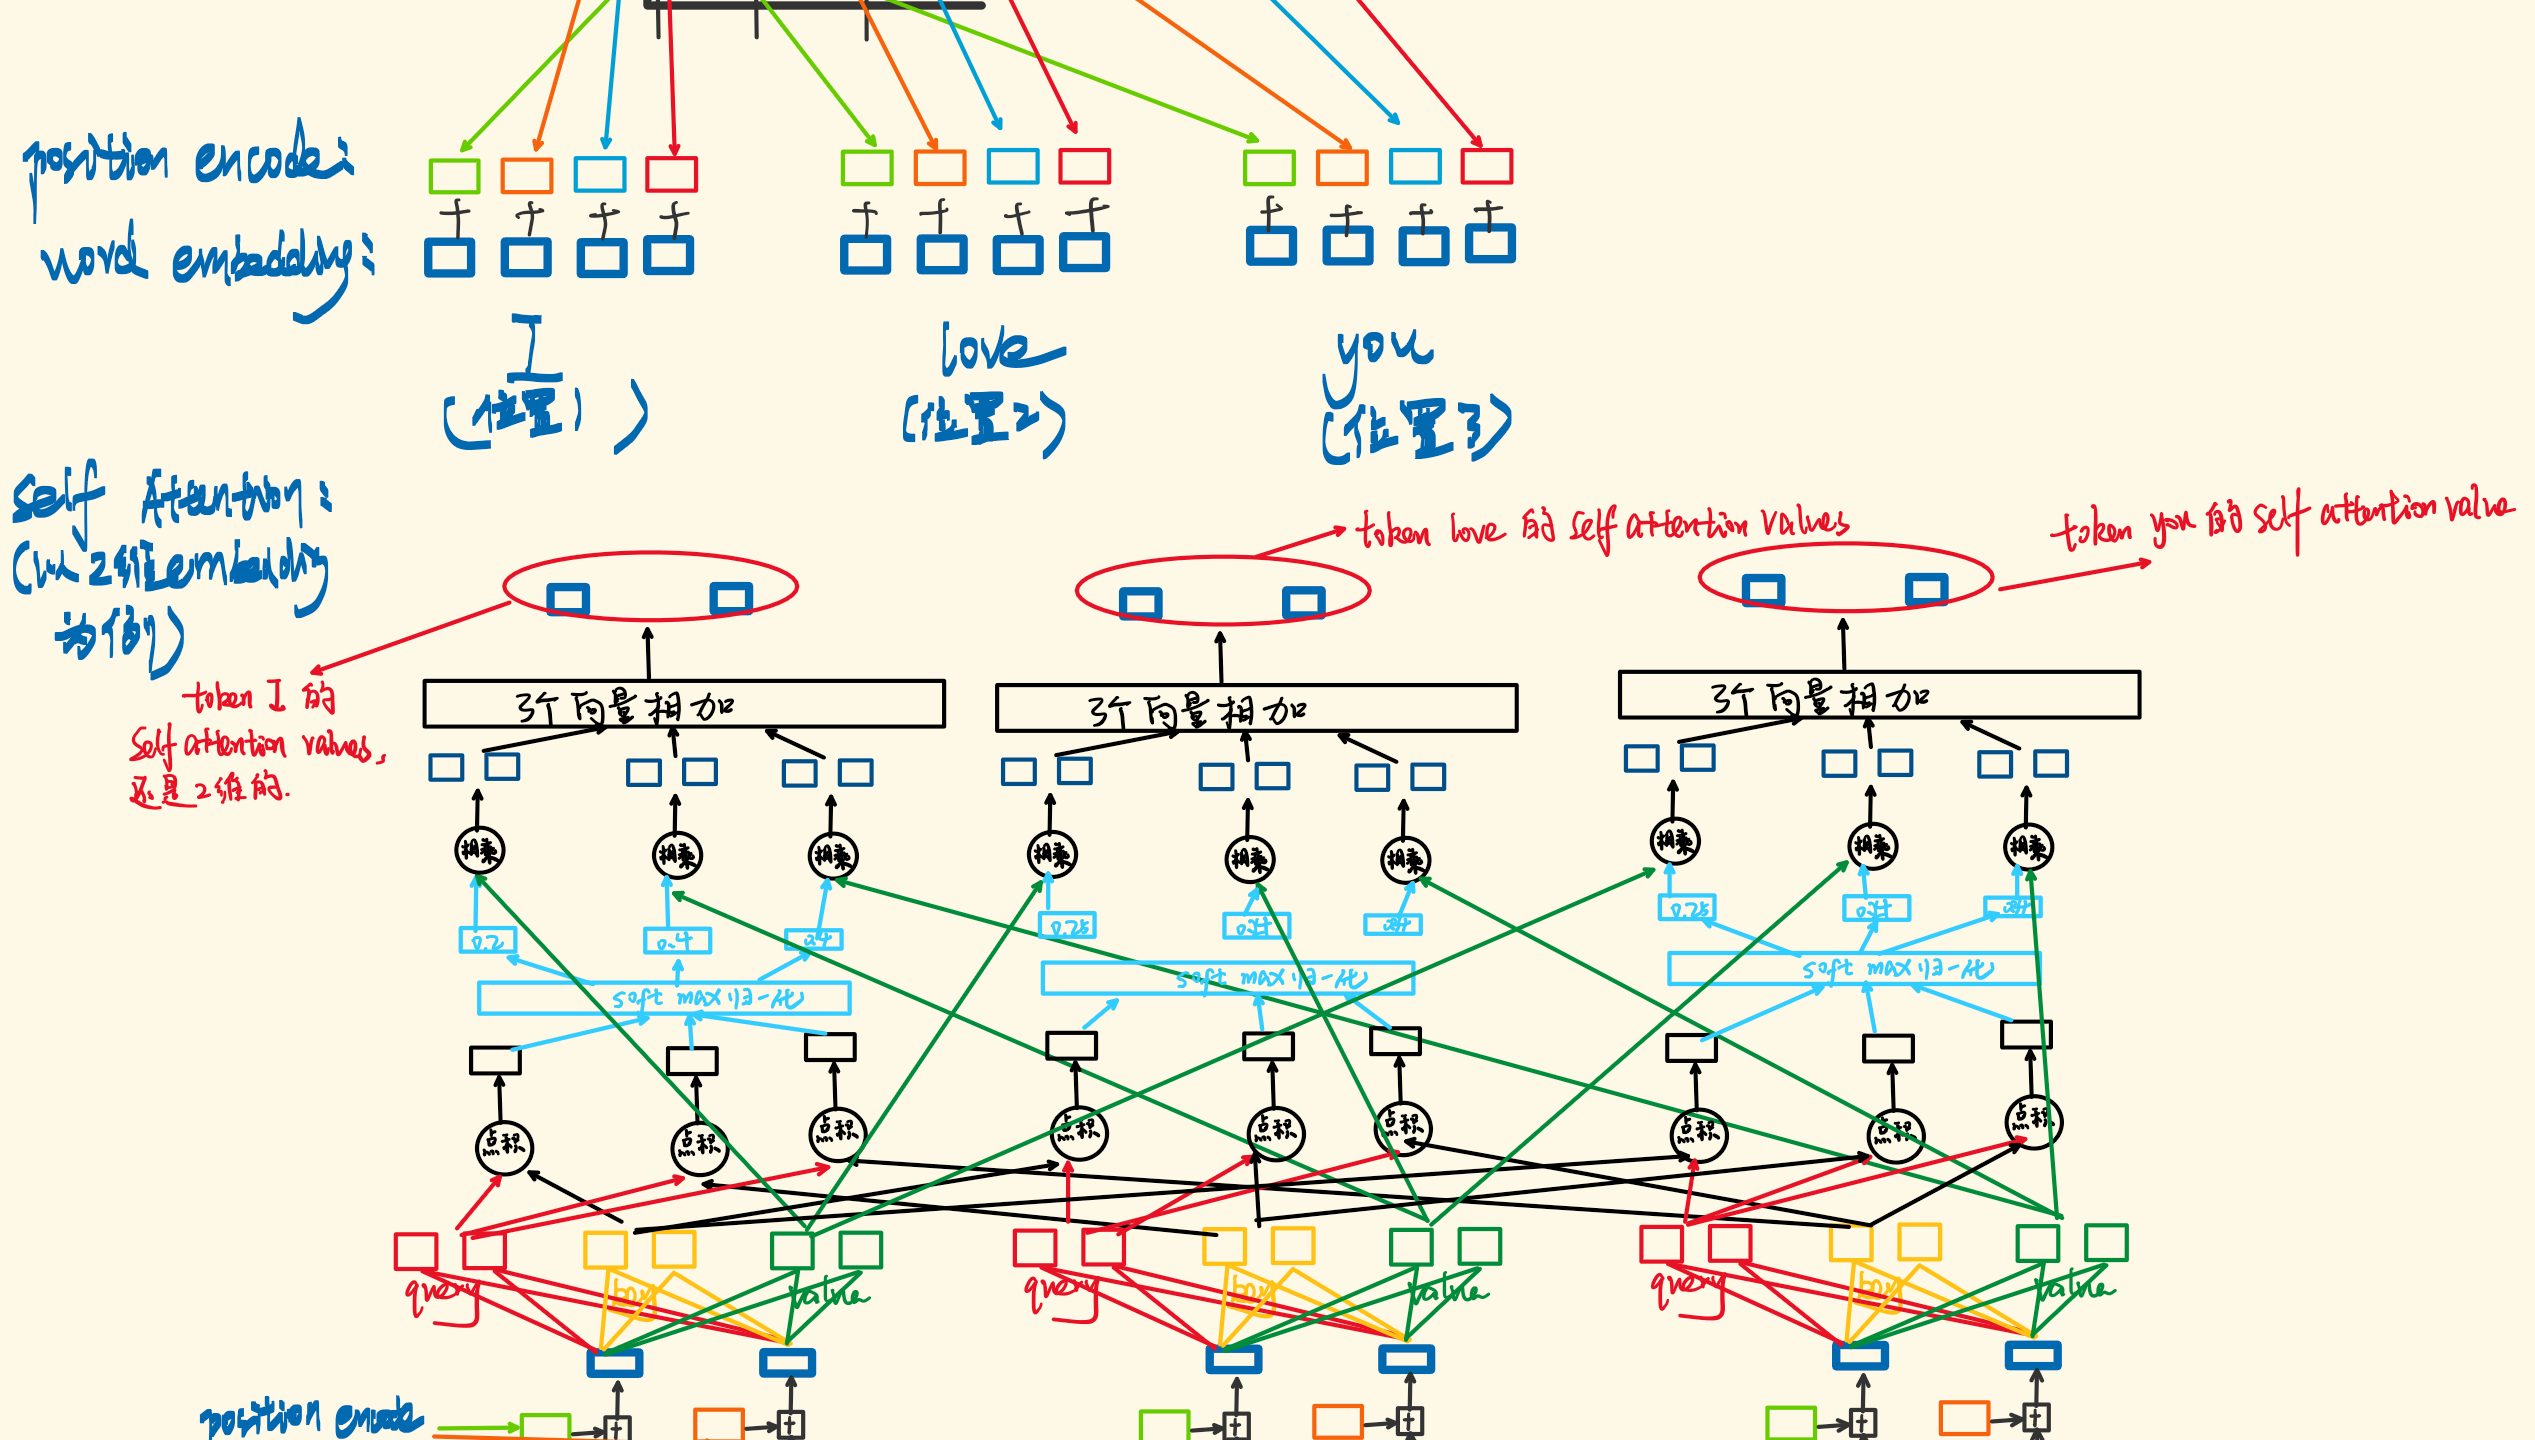 position encode:
word embedding:
I
love
you
(位置1)
(位置2)
(位置3)
self Attention:
(以2维embedding
为例)
token I 的
self attention values,
还是2维的.
token love 的 self attention values
token you 的 self attention value
3个向量相加
3个向量相加
3个向量相加
相乘
相乘
相乘
相乘
相乘
相乘
相乘
相乘
相乘
0.2
0.4
0.4
0.25
0.25
soft max 归一化
soft max 归一化
soft max 归一化
点积
点积
点积
点积
点积
点积
点积
点积
点积
query
key
value
query
key
value
query
key
value
position encode
+
+
+
+
+
+